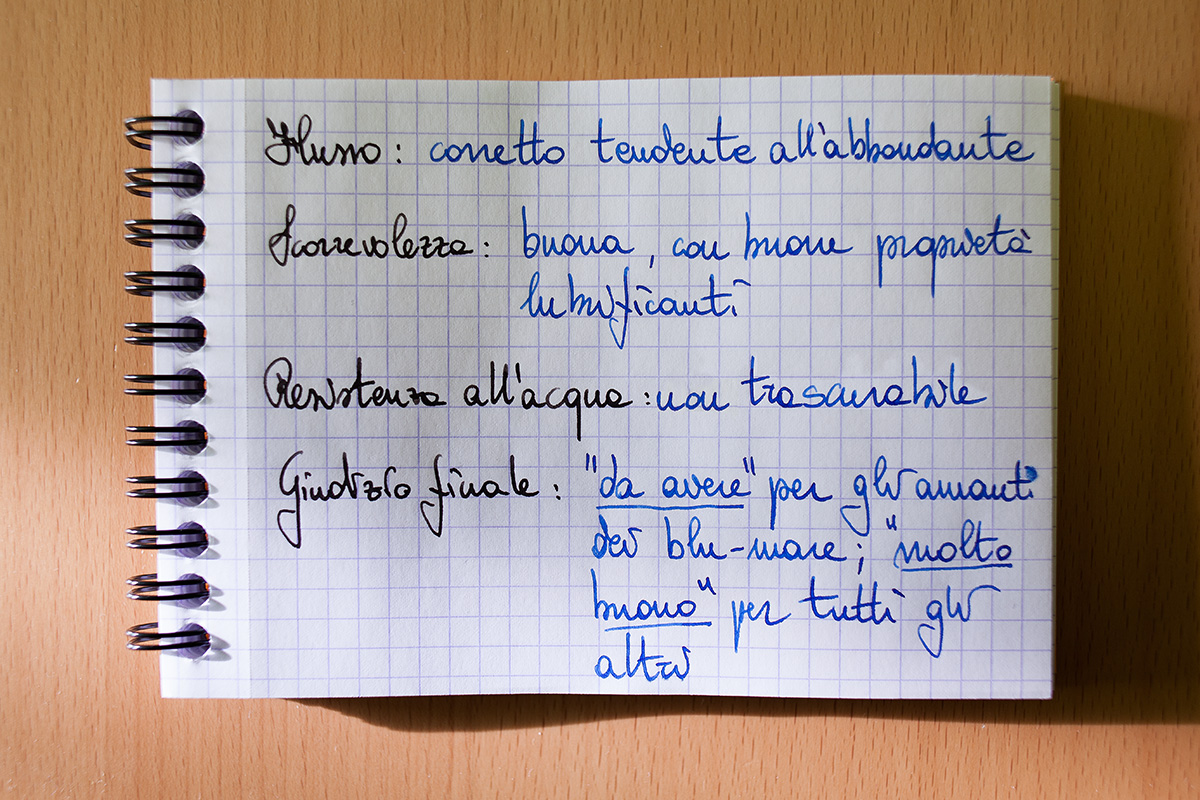 Flusso: corretto tendente all'abbondante
Scorrevolezza: buona, con buone proprietà
lubrificanti
Resistenza all'acqua: non trascurabile
Giudizio finale: "da avere" per gli amanti
dei blu-mare; "molto
buono" per tutti gli
altri